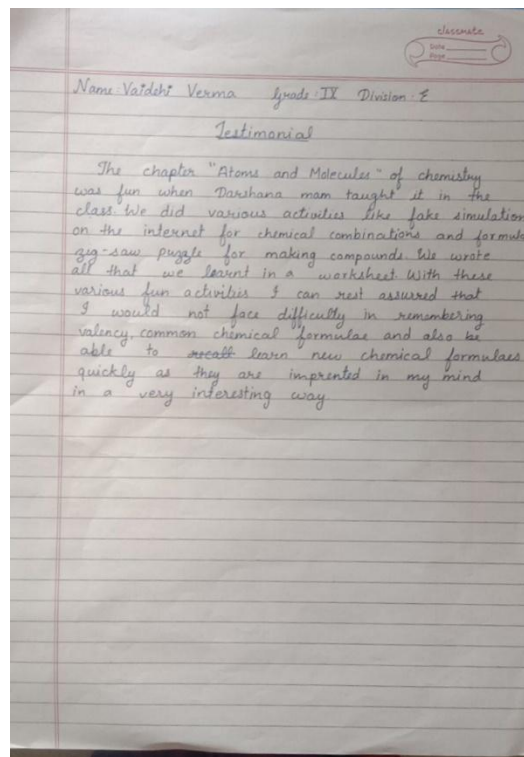 classmate
Date
Page
Name: Vaidehi Verma Grade: IX Division: E
Testimonial
The chapter "Atoms and Molecules" of chemistry
was fun when Darshana mam taught it in the
class. We did various activities like fake simulation
on the internet for chemical combinations and formula
zig-saw puzzle for making compounds. We wrote
all that we learnt in a worksheet. With these
various fun activities I can rest assured that
I would not face difficulty in remembering
valency, common chemical formulae and also be
able to recall learn new chemical formulaes
quickly as they are imprented in my mind
in a very interesting way